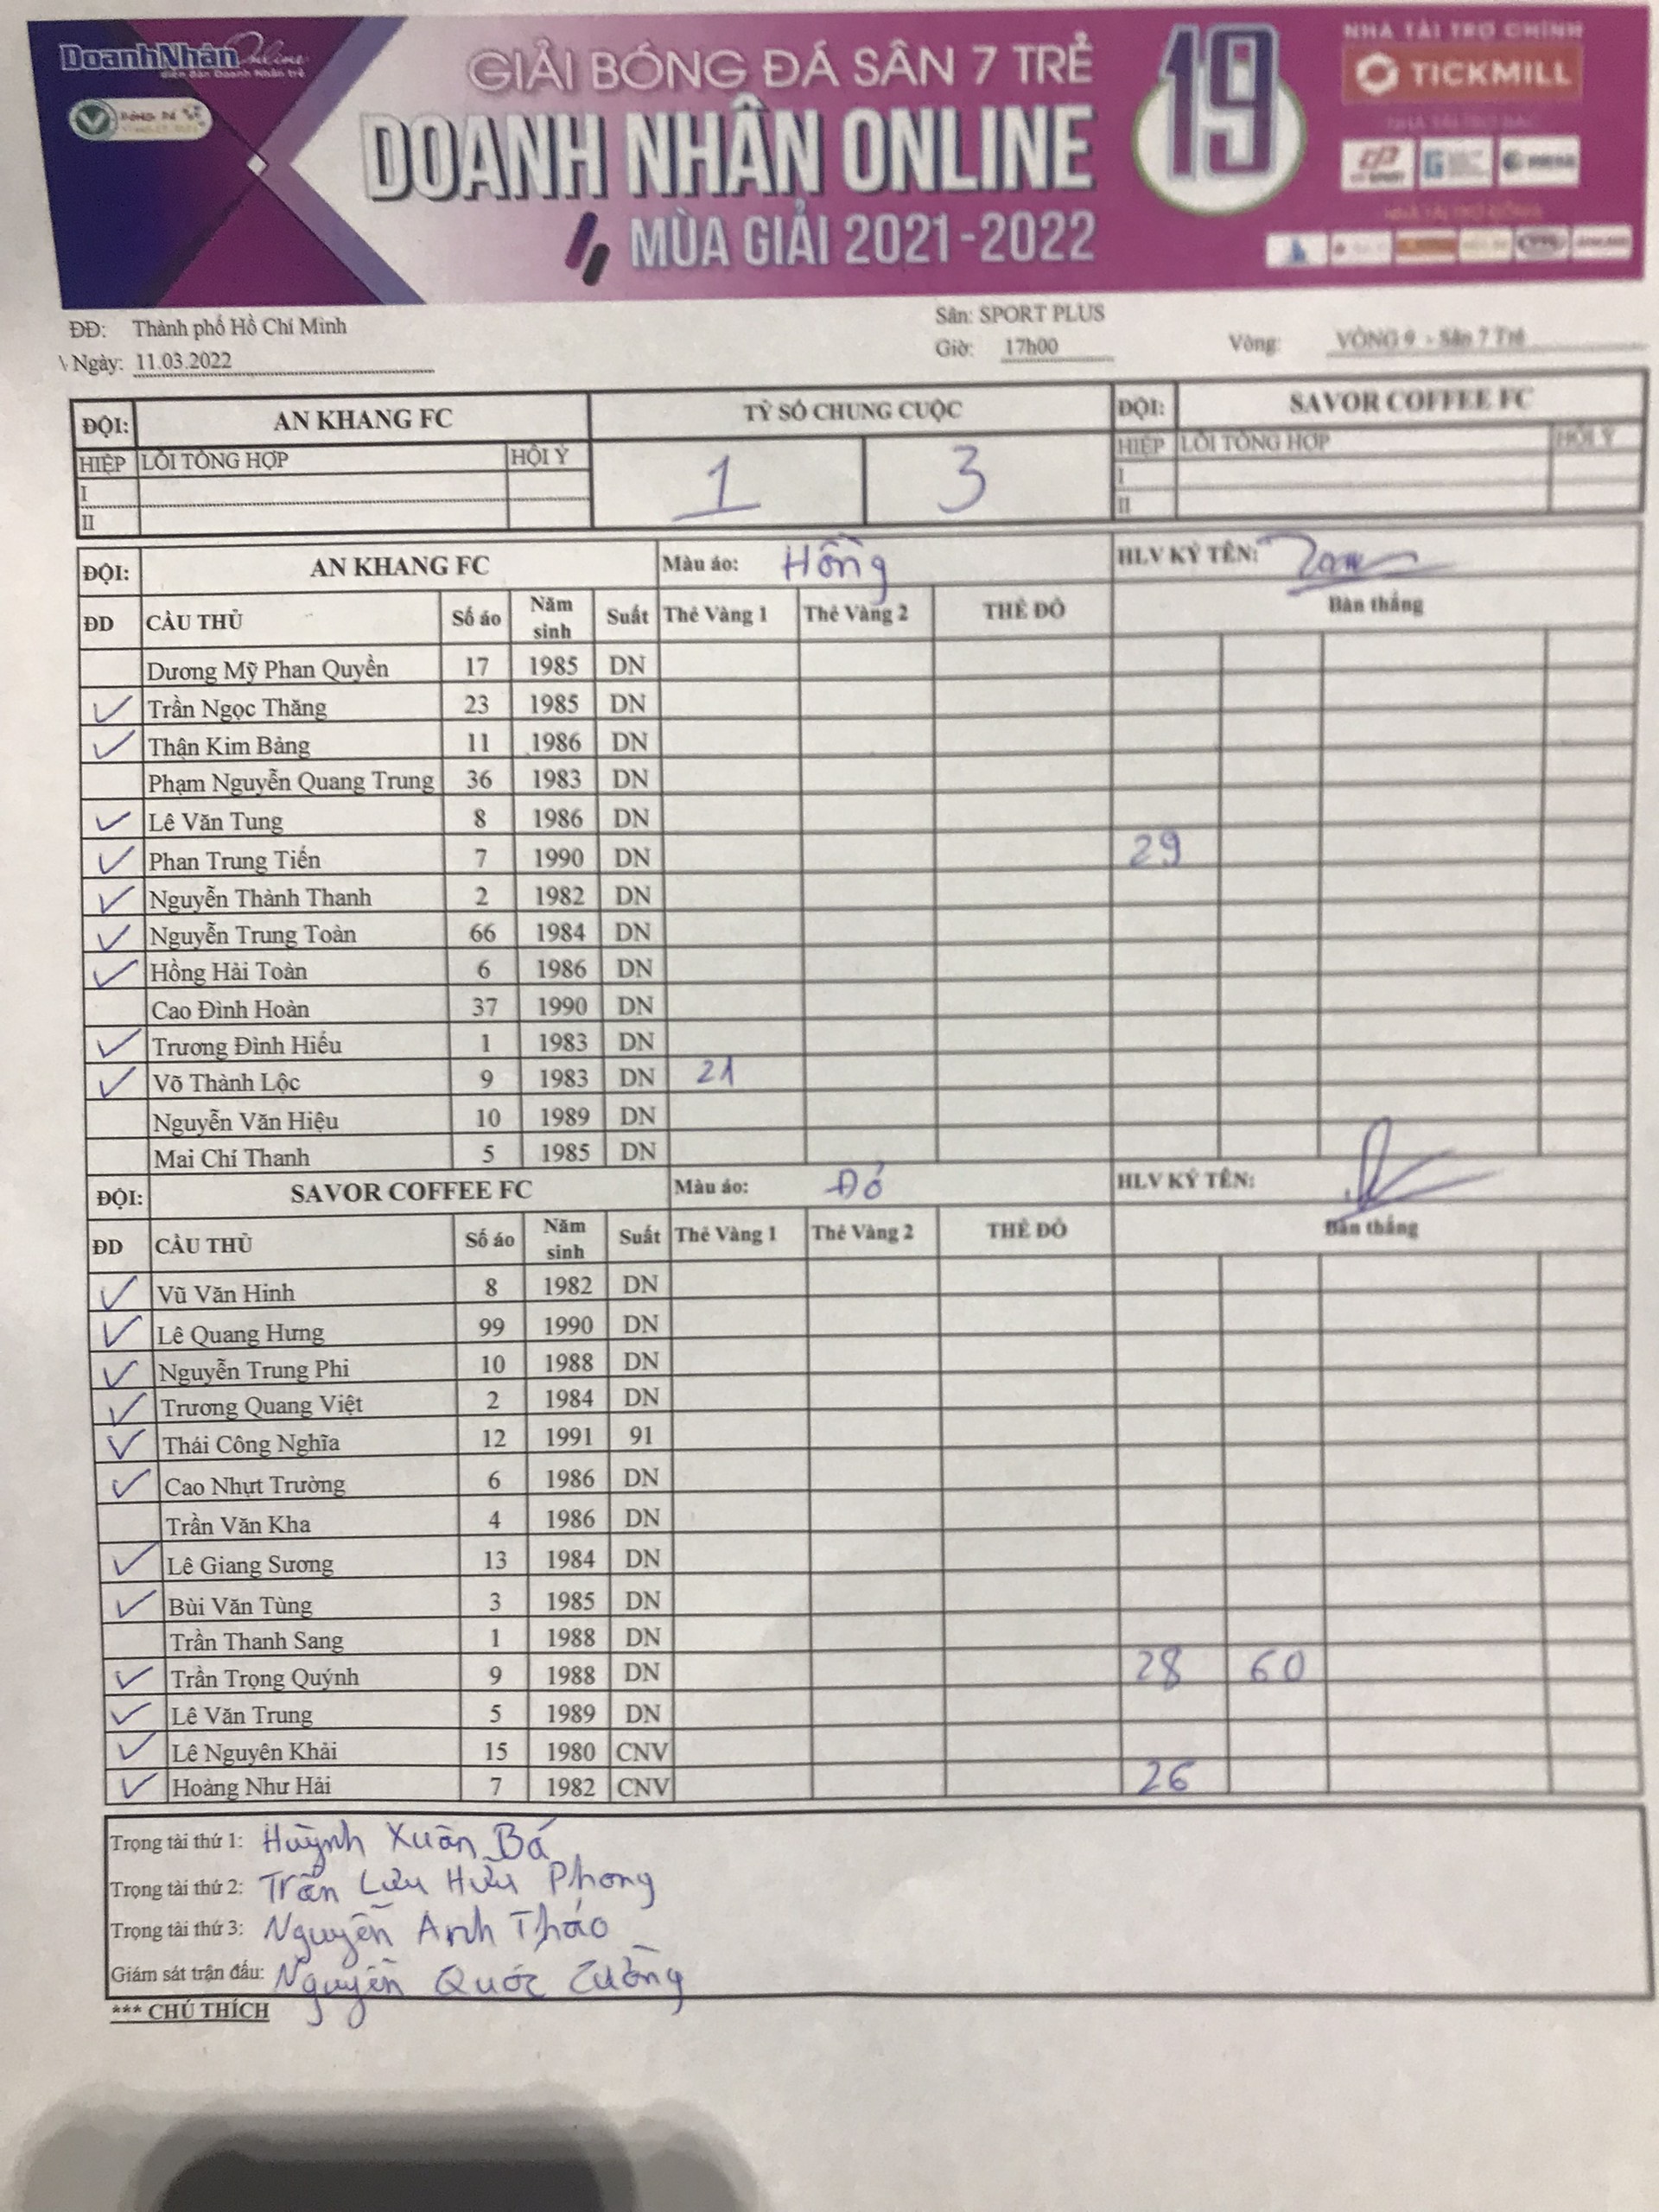 DoanhNhân Online
diễn đàn Doanh Nhân trẻ
GIẢI BÓNG ĐÁ SÂN 7 TRẺ
DOANH NHÂN ONLINE
MÙA GIẢI 2021-2022
19
NHÀ TÀI TRỢ CHÍNH
TICKMILL
ĐĐ: Thành phố Hồ Chí Minh
Sân: SPORT PLUS
Ngày: 11.03.2022
Giờ: 17h00
Vòng: VÒNG 9 - Sân 7 Trẻ
ĐỘI: AN KHANG FC TỶ SỐ CHUNG CUỘC ĐỘI: SAVOR COFFEE FC
HIỆP LỖI TỔNG HỢP HỘI Ý 1 3 HIỆP LỖI TỔNG HỢP HỘI Ý
I I
II II
ĐỘI: AN KHANG FC Màu áo: Hồng HLV KÝ TÊN:
ĐD CẦU THỦ Số áo Năm sinh Suất Thẻ Vàng 1 Thẻ Vàng 2 THẺ ĐỎ Bàn thắng
Dương Mỹ Phan Quyền 17 1985 DN
✓ Trần Ngọc Thăng 23 1985 DN
✓ Thận Kim Bảng 11 1986 DN
Phạm Nguyễn Quang Trung 36 1983 DN
✓ Lê Văn Tung 8 1986 DN
✓ Phan Trung Tiến 7 1990 DN 29
✓ Nguyễn Thành Thanh 2 1982 DN
✓ Nguyễn Trung Toàn 66 1984 DN
✓ Hồng Hải Toàn 6 1986 DN
Cao Đình Hoàn 37 1990 DN
✓ Trương Đình Hiếu 1 1983 DN
✓ Võ Thành Lộc 9 1983 DN 21
Nguyễn Văn Hiệu 10 1989 DN
Mai Chí Thanh 5 1985 DN
ĐỘI: SAVOR COFFEE FC Màu áo: Đỏ HLV KÝ TÊN:
ĐD CẦU THỦ Số áo Năm sinh Suất Thẻ Vàng 1 Thẻ Vàng 2 THẺ ĐỎ Bàn thắng
✓ Vũ Văn Hinh 8 1982 DN
✓ Lê Quang Hưng 99 1990 DN
✓ Nguyễn Trung Phi 10 1988 DN
✓ Trương Quang Việt 2 1984 DN
✓ Thái Công Nghĩa 12 1991 91
✓ Cao Nhựt Trường 6 1986 DN
Trần Văn Kha 4 1986 DN
✓ Lê Giang Sương 13 1984 DN
✓ Bùi Văn Tùng 3 1985 DN
Trần Thanh Sang 1 1988 DN
✓ Trần Trọng Quýnh 9 1988 DN 28 60
✓ Lê Văn Trung 5 1989 DN
✓ Lê Nguyên Khải 15 1980 CNV
✓ Hoàng Như Hải 7 1982 CNV 26
Trọng tài thứ 1: Huỳnh Xuân Bá
Trọng tài thứ 2: Trần Lưu Hữu Phong
Trọng tài thứ 3: Nguyễn Anh Thảo
Giám sát trận đấu: Nguyễn Quốc Cường
*** CHÚ THÍCH